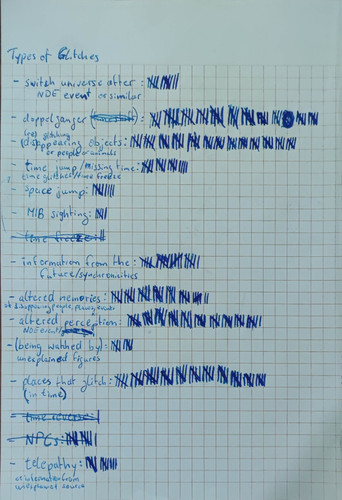 Types of Glitches
- switch universe after :
NDE event or similar
- doppelganger
- (dis)appearing objects:
or people or animals
- time jump/missing time:
time glitches/time freeze
- space jump:
- MIB sighting:
- time freeze:
- information from the :
future/synchronicities
- altered memories:
- altered perception:
NDE event
- (being watched by):
unexplained figures
- places that glitch:
(in time)
- time reverse:
- NPCs:
- telepathy:
or information from
unexplained source